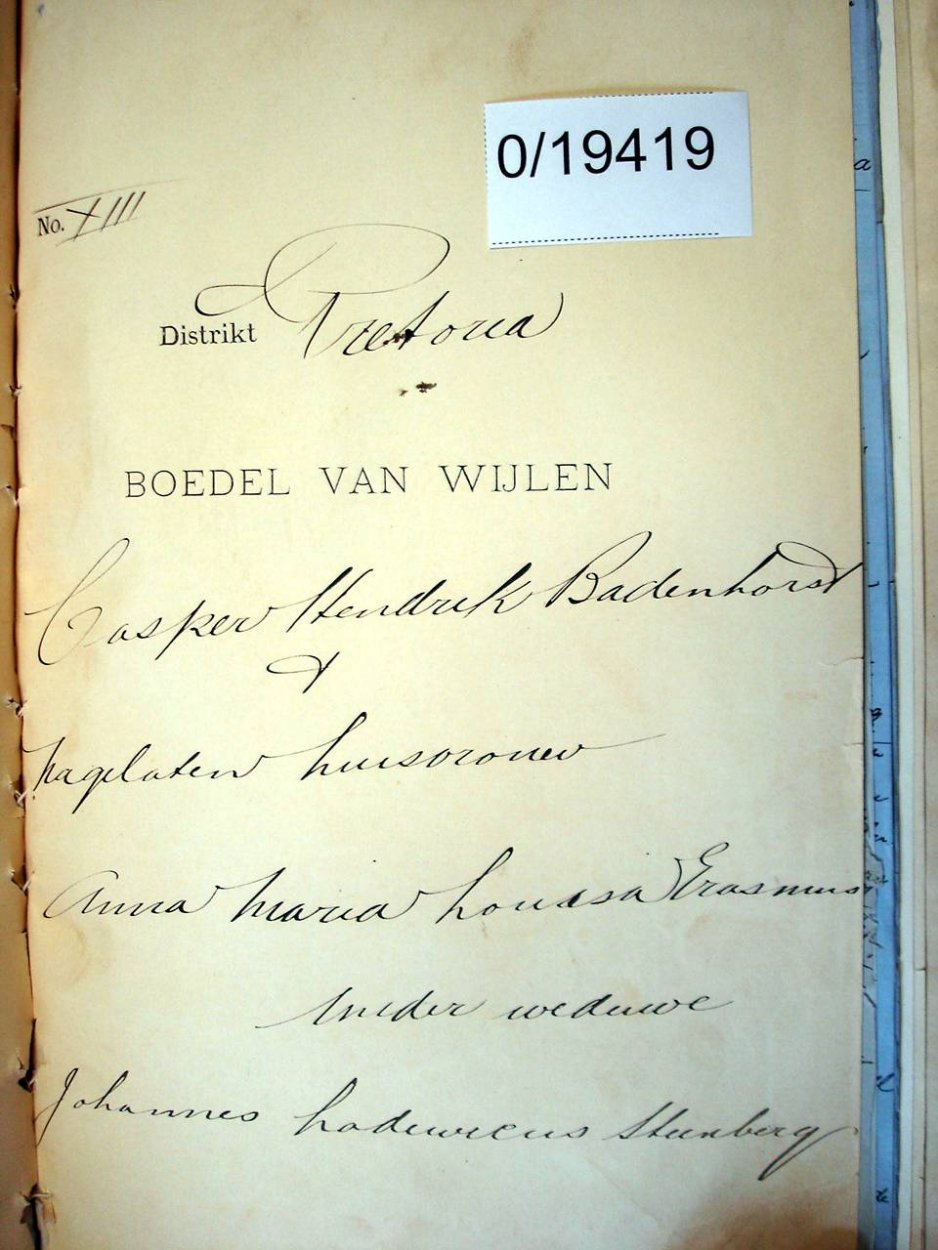 0/19419
No. XIII
Distrikt Pretoria
BOEDEL VAN WIJLEN
Casper Hendrik Badenhorst
&
nagelaten huisvrouw
Anna Maria Louisa Erasmus
weduwe
Johannes Lodewicus Steenberg